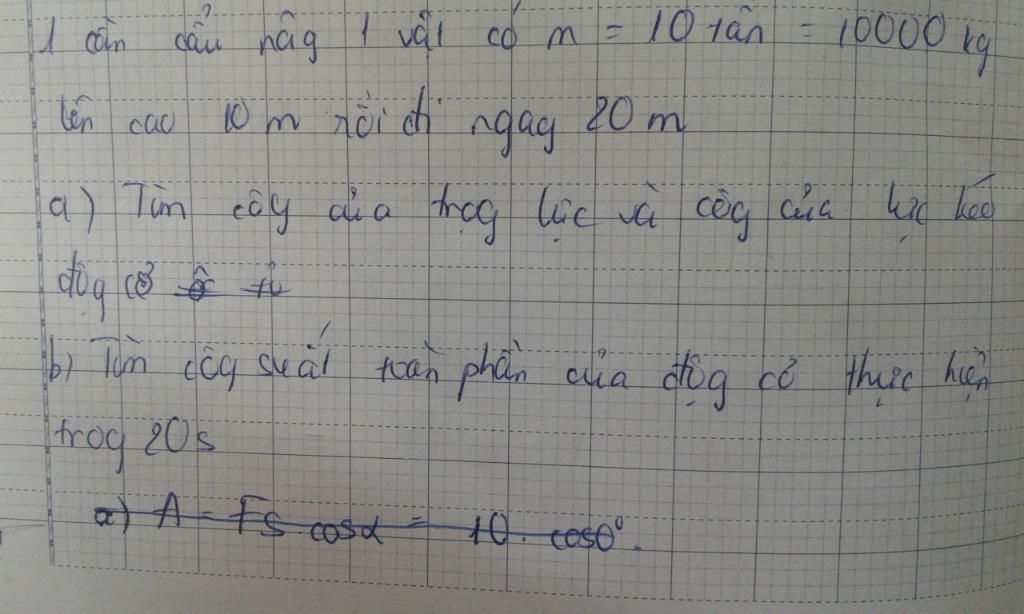 1 cần cẩu nâg 1 vật có m = 10 tấn = 10000 kg
lên cao 10 m rồi đi ngag 20 m
a) Tìm côg của trọg lực và côg của lực kéo
độg cơ
b) Tìm côg suất toàn phần của độg cơ thực hiện
trog 20s
a) A = Fs cosα = 10. cos0°.